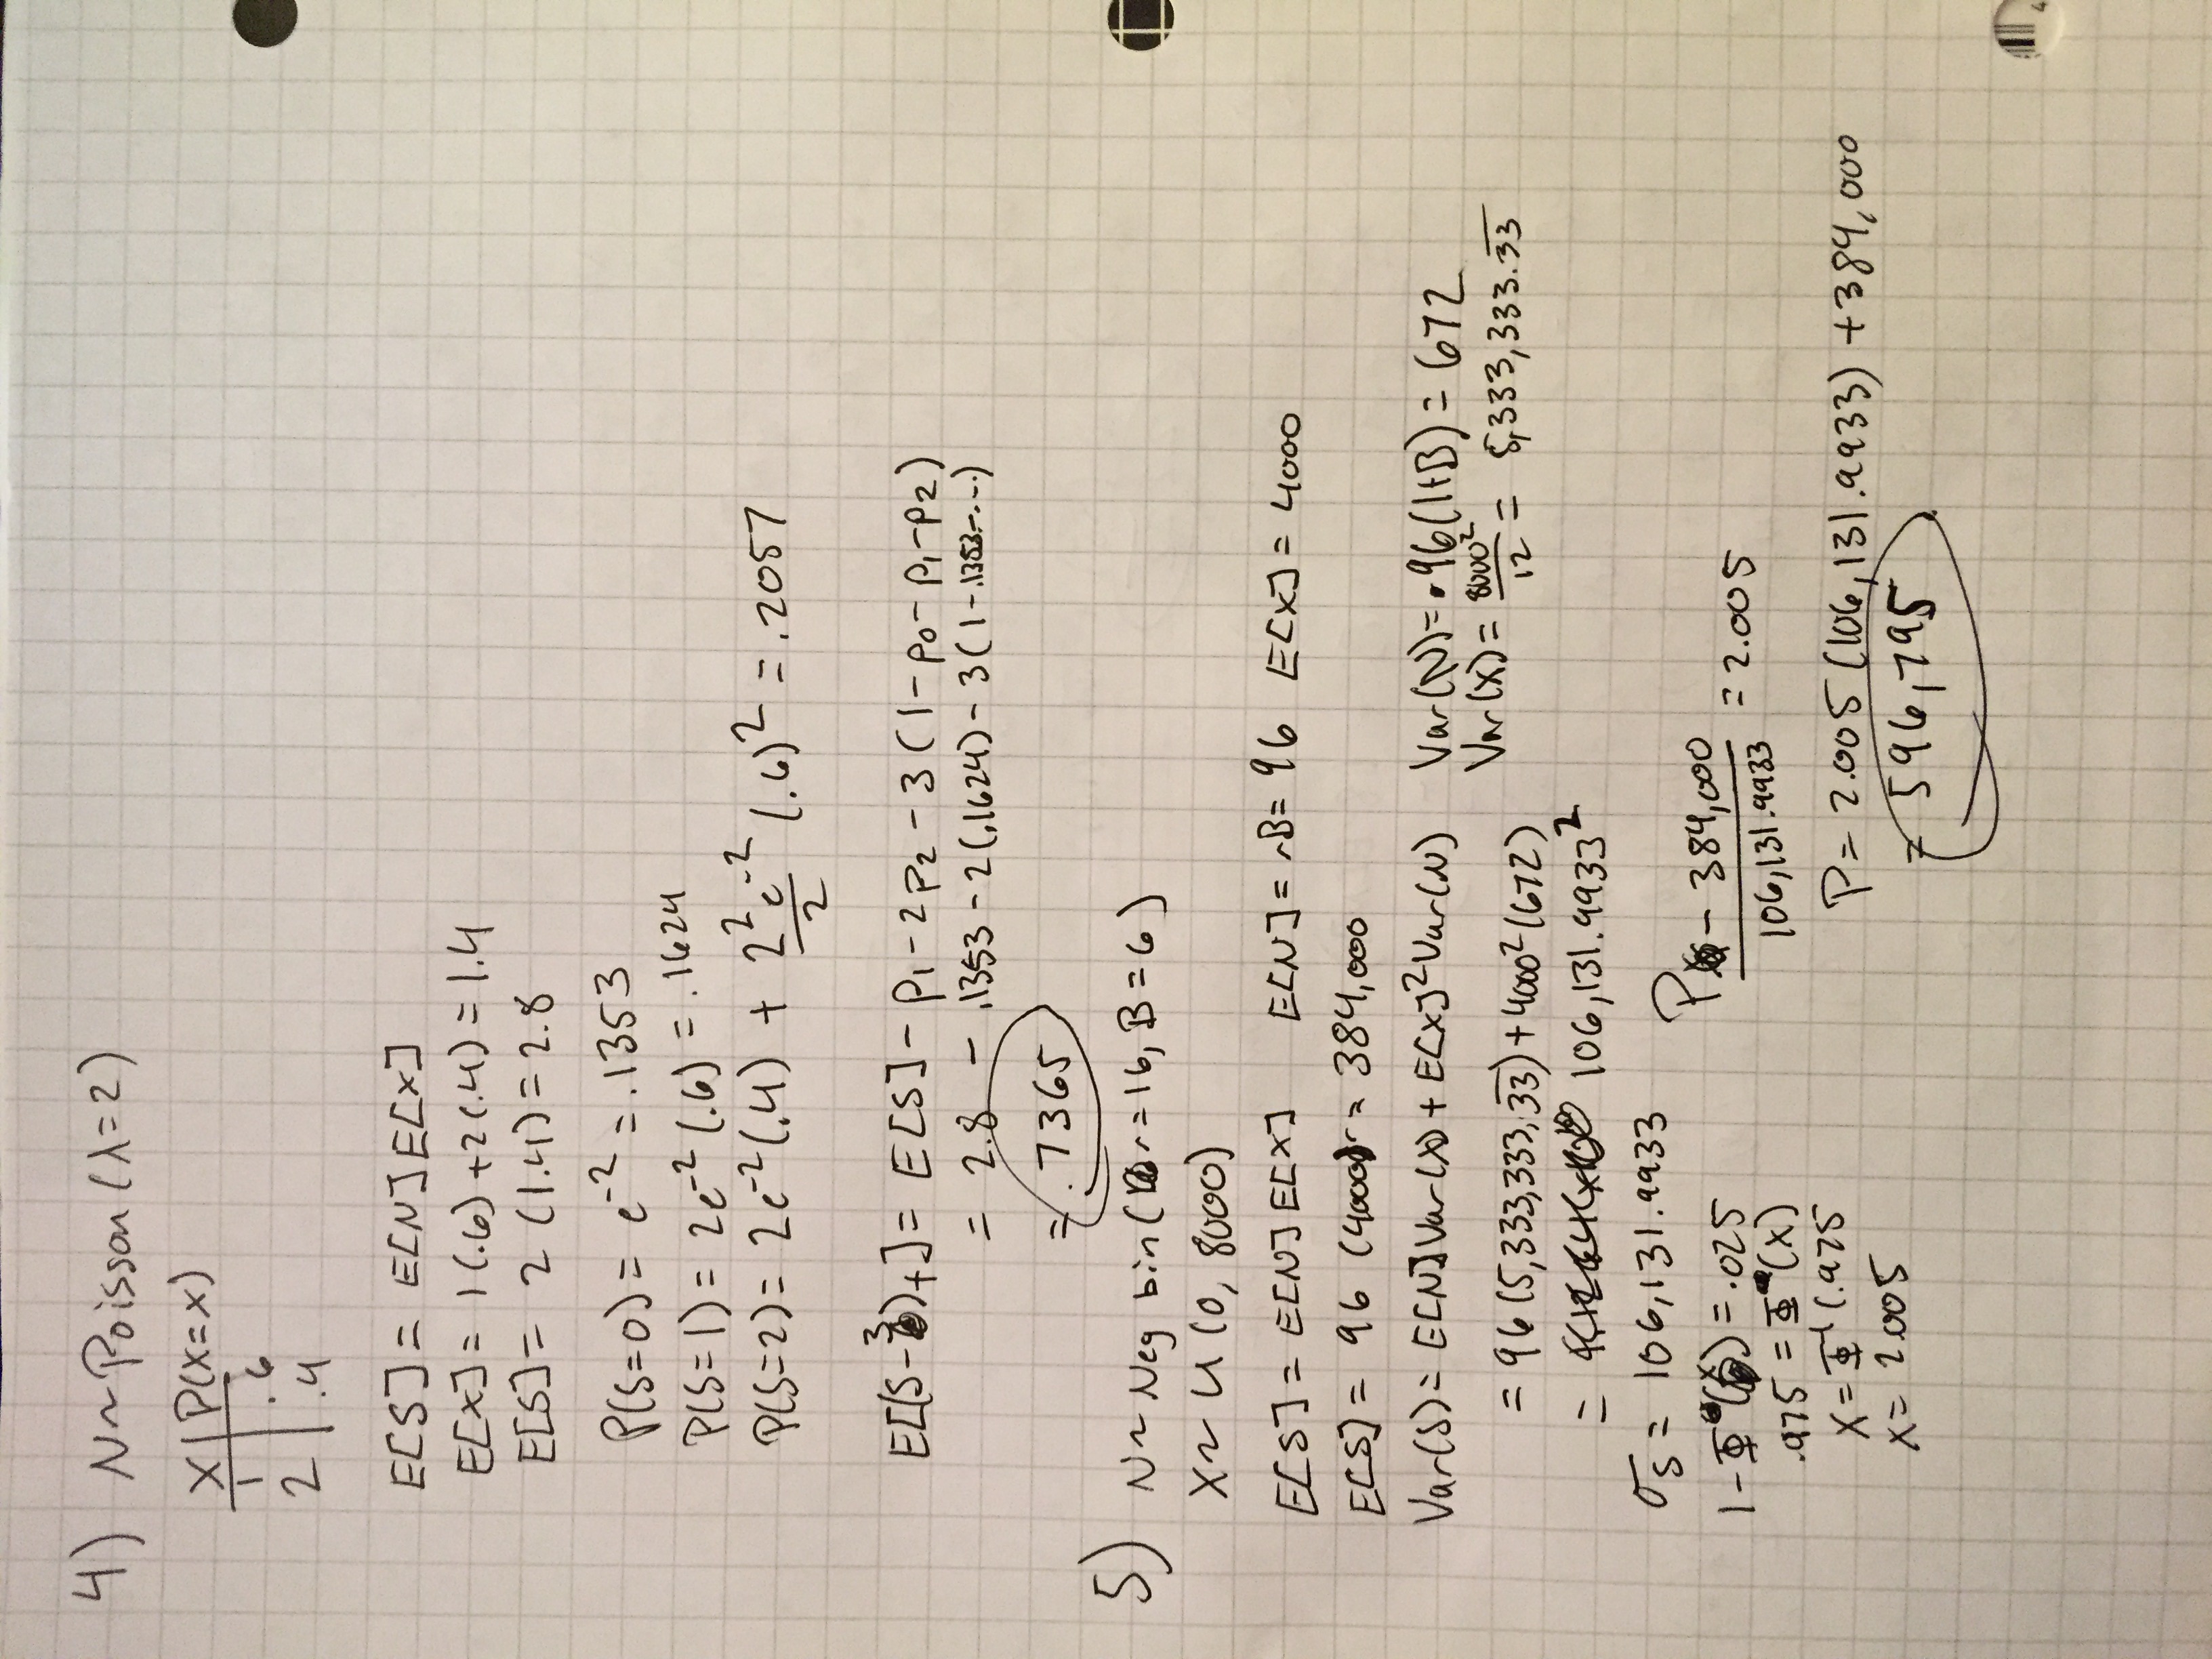 4) N~Poisson(λ=2)
X | P(X=x)
1 | .6
2 | .4
E[S] = E[N]E[X]
E[X] = 1(.6)+2(.4)=1.4
E[S] = 2 (1.4) = 2.8
P(S=0) = e^-2 = .1353
P(S=1) = 2e^-2 (.6) = .1624
P(S=2) = 2e^-2(.4) + 2^2e^-2/2 (.6)^2 = .2057
E[(S-3)+] = E[S] - p1 - 2p2 - 3(1-p0-p1-p2)
= 2.8 - .1353 - 2(.1624) - 3(1-.1353-...)
= .7365
5) N~Neg bin(r=16, B=6)
X~U(0, 8000)
E[S] = E[N]E[X] E[N] = rB= 96 E[X] = 4000
E[S] = 96 (4000) = 384,000
Var(S) = E[N]Var(X) + E[X]^2Var(N) Var(N)= 96(1+B) = 672
Var(X) = 8000^2/12 = 5,333,333.33
= 96(5,333,333.33)+4000^2(672)
= 106,131.9933^2
σS = 106,131.9933
P - 384,000 / 106,131.9933 = 2.005
1-Φ(x) = .025
.975 = Φ(x)
x = Φ^-1(.975
x = 2.005
P = 2.005 (106,131.9933) + 384,000
= 596,795
4